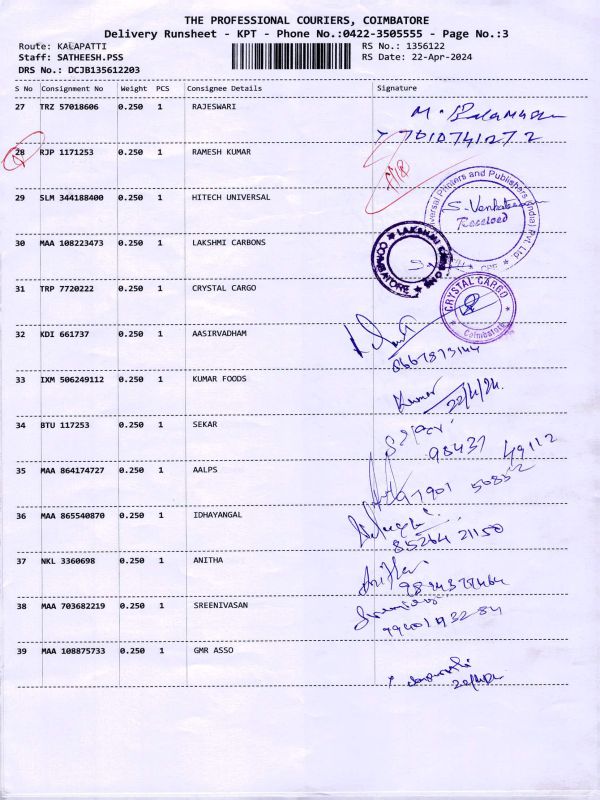 THE PROFESSIONAL COURIERS, COIMBATORE
Delivery Runsheet - KPT - Phone No.:0422-3505555 - Page No.:3
Route: KALAPATTI RS No.: 1356122
Staff: SATHEESH.PSS RS Date: 22-Apr-2024
DRS No.: DCJB135612203
S No Consignment No Weight PCS Consignee Details Signature
27 TRZ 57018606 0.250 1 RAJESWARI
7010741272
28 RJP 1171253 0.250 1 RAMESH KUMAR
29 SLM 344188400 0.250 1 HITECH UNIVERSAL
Printers and Publishers (India) Pvt. Ltd.
Received
30 MAA 108223473 0.250 1 LAKSHMI CARBONS
LAKSHMI
COIMBATORE
31 TRP 7720222 0.250 1 CRYSTAL CARGO
CRYSTAL CARGO
Coimbatore
32 KDI 661737 0.250 1 AASIRVADHAM
8667873144
33 IXM 506249112 0.250 1 KUMAR FOODS
Kumar 22/4/24
34 BTU 117253 0.250 1 SEKAR
98437 49112
35 MAA 864174727 0.250 1 AALPS
36 MAA 865540870 0.250 1 IDHAYANGAL
85264 21150
37 NKL 3360698 0.250 1 ANITHA
38 MAA 703682219 0.250 1 SREENIVASAN
39 MAA 108875733 0.250 1 GMR ASSO